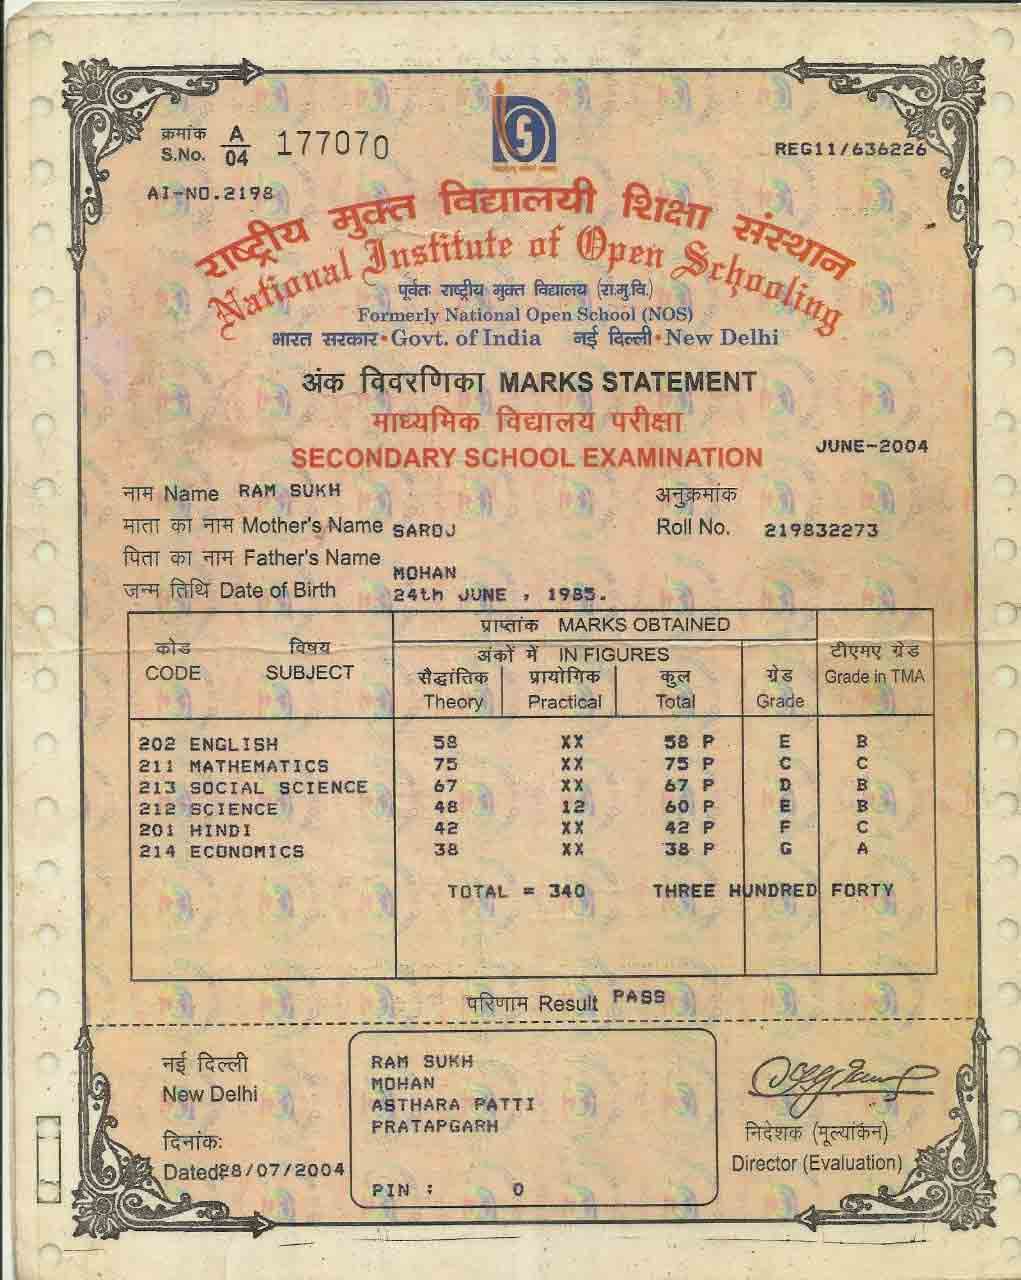 क्रमांक A
S.No. 04 177070
REG11/636226
AI-NO.2198
राष्ट्रीय मुक्त विद्यालयी शिक्षा संस्थान
National Institute of Open Schooling
पूर्वतः राष्ट्रीय मुक्त विद्यालय (रा.मु.वि.)
Formerly National Open School (NOS)
भारत सरकार • Govt. of India नई दिल्ली • New Delhi
अंक विवरणिका MARKS STATEMENT
माध्यमिक विद्यालय परीक्षा
SECONDARY SCHOOL EXAMINATION
JUNE-2004
नाम Name RAM SUKH अनुक्रमांक
माता का नाम Mother's Name SAROJ Roll No. 219832273
पिता का नाम Father's Name MOHAN
जन्म तिथि Date of Birth 24th JUNE , 1985.
प्राप्तांक MARKS OBTAINED
कोड विषय अंकों में IN FIGURES टीएमए ग्रेड
CODE SUBJECT सैद्धांतिक प्रायोगिक कुल ग्रेड Grade in TMA
Theory Practical Total Grade
202 ENGLISH 58 XX 58 P E B
211 MATHEMATICS 75 XX 75 P C C
213 SOCIAL SCIENCE 67 XX 67 P D B
212 SCIENCE 48 12 60 P E B
201 HINDI 42 XX 42 P F C
214 ECONOMICS 38 XX 38 P G A
TOTAL = 340 THREE HUNDRED FORTY
परिणाम Result PASS
नई दिल्ली
New Delhi
दिनांक:
Dated: 28/07/2004
RAM SUKH
MOHAN
ASTHARA PATTI
PRATAPGARH
PIN : 0
निदेशक (मूल्यांकन)
Director (Evaluation)